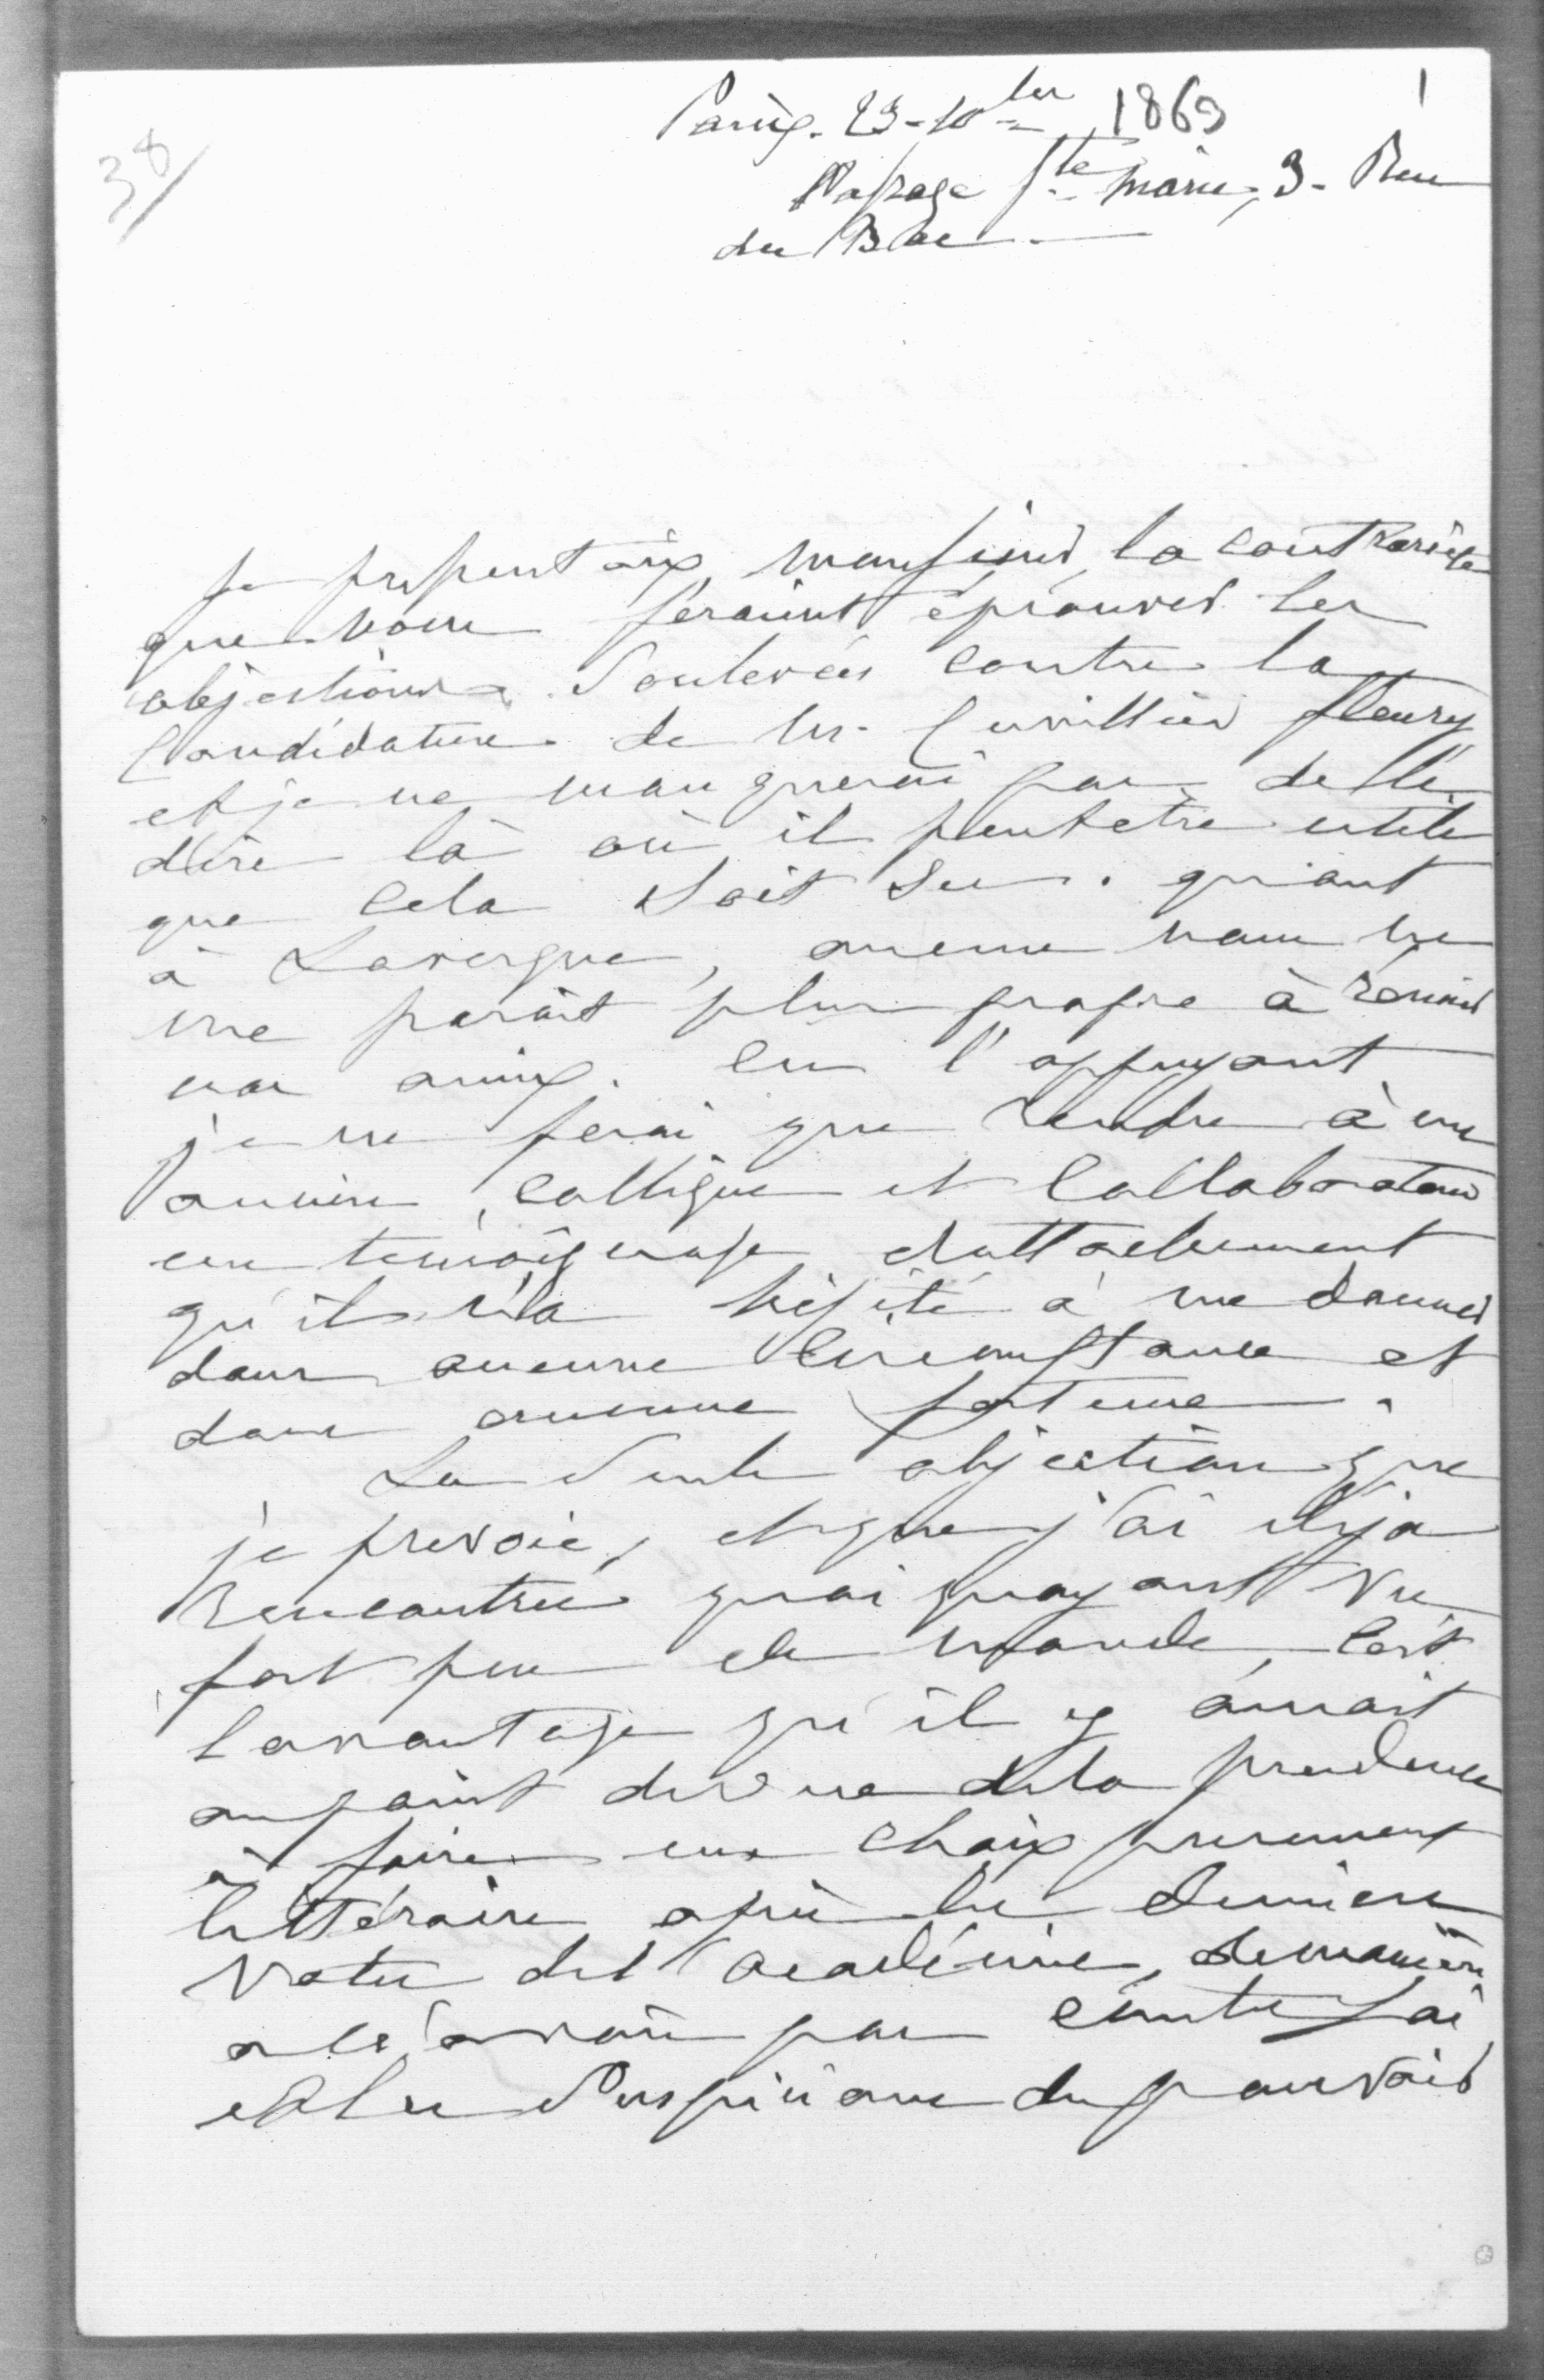 38/
1
Paris. 23 - 10bre 1869
Passage Ste marie, 3 - Rue
du Bac
Je pressentais, monsieur, la contrariété
que vous feraient éprouver les
objections soulevées contre la
Candidature de Mr. Cuvillier fleury
et je ne manquerai pas de le
dire là où il peut etre utile
que cela soit su. quant
à Lavergne, aucun nom ne
me parait plus propre à reunir
nos amis. en l'appuyant
je ne ferai que rendre à un
ancien collègue et collaborateur
un temoignage d'attachement
qu'il n'a hésité à me donner
dans aucune circonstance et
dans aucune fortune.
La seule objection que
je prevoie, et que j'ai deja
rencontrée quoiqu'ayant vu
fort peu de monde, c'est
l'avantage qu'il y aurait
au point de vue de la prudence
à faire un choix purement
littéraire après les derniers
votes de l'académie, de manière
a ne avoir pas contre soi
et les suspicions du pouvoir